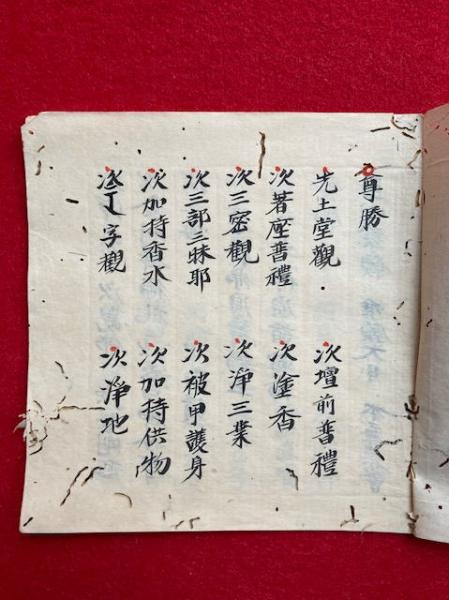 尊勝
先上堂觀 次壇前普禮
次著座普禮 次塗香
次三密觀 次淨三業
次三部三昧耶 次被甲護身
次加持香水 次加持供物
次字觀 次淨地